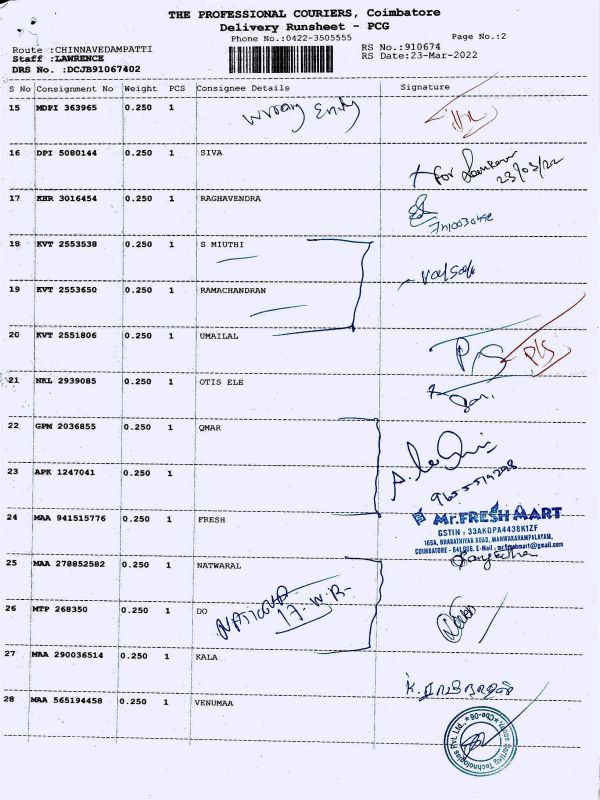 THE PROFESSIONAL COURIERS, Coimbatore
Delivery Runsheet - PCG
Phone No.:0422-3505555
Page No.:2
Route :CHINNAVEDAMPATTI
RS No.:910674
Staff :LAWRENCE
RS Date:23-Mar-2022
DRS No. :DCJB91067402
S No Consignment No Weight PCS Consignee Details Signature
15 MDPI 363965 0.250 1 Wrong Entry
16 DPI 5080144 0.250 1 SIVA
For
23/03/22
17 KHR 3016454 0.250 1 RAGHAVENDRA
18 KVT 2553538 0.250 1 S MIUTHI
19 KVT 2553650 0.250 1 RAMACHANDRAN
20 KVT 2551806 0.250 1 UMAILAL
21 NKL 2939085 0.250 1 OTIS ELE
22 GPM 2036855 0.250 1 QMAR
23 APK 1247041 0.250 1
24 MAA 941515776 0.250 1 FRESH
Mr.FRESH MART
GSTIN : 33AKOPA4438K1ZF
165A, BHARATHIYAR ROAD, MANIKARAMPALAYAM,
COIMBATORE - 641 006. E-Mail : mr.freshmart@gmail.com
Sangeetha
25 MAA 278852582 0.250 1 NATWARAL
26 MTP 268350 0.250 1 DO
27 MAA 290036514 0.250 1 KALA
28 MAA 565194458 0.250 1 VENUMAA
Technologies Pvt. Ltd., Cbe-06